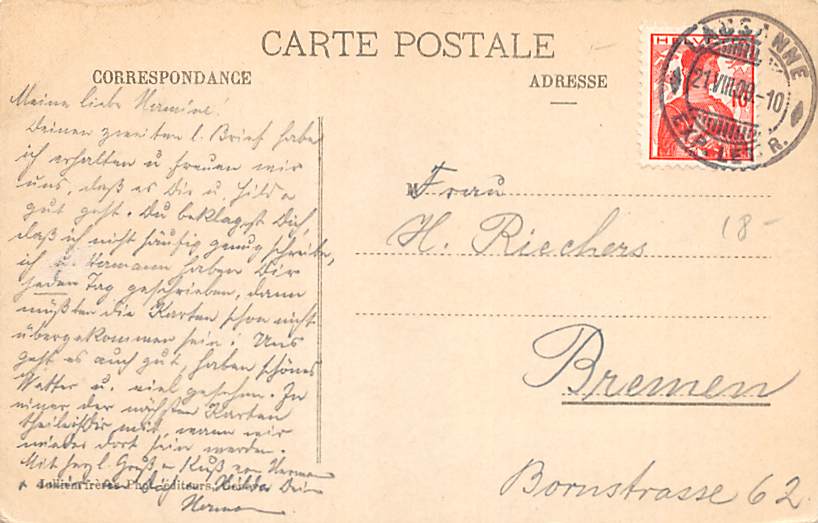 CARTE POSTALE
CORRESPONDANCE
ADRESSE
HELV
10
LAUSANNE
21.VIII.09-10
EXP. LETTR.
Meine liebe Hermine!
Deinen zweiten l. Brief habe
ich erhalten u. freuen wir
uns, daß es Dir u. Hilde
gut geht. Du beklagst Dich,
daß ich nicht häufig genug schreibe,
ich u. Hermann haben Dir
jeden Tag geschrieben, dann
müßten die Karten schon nicht
übergekommen sein! Uns
geht es auch gut, haben schönes
Wetter u. viel gesehen. In
einer der nächsten Karten
theile ich Dir mit, wann wir
wieder dort sein werden.
Mit herzl. Gruß u. Kuß von Hermann
Hilda Dein
Hermann
Jullien frères Phot.-éditeurs, Genève
Frau
H. Riechers
18-
Bremen
Bornstrasse 62.